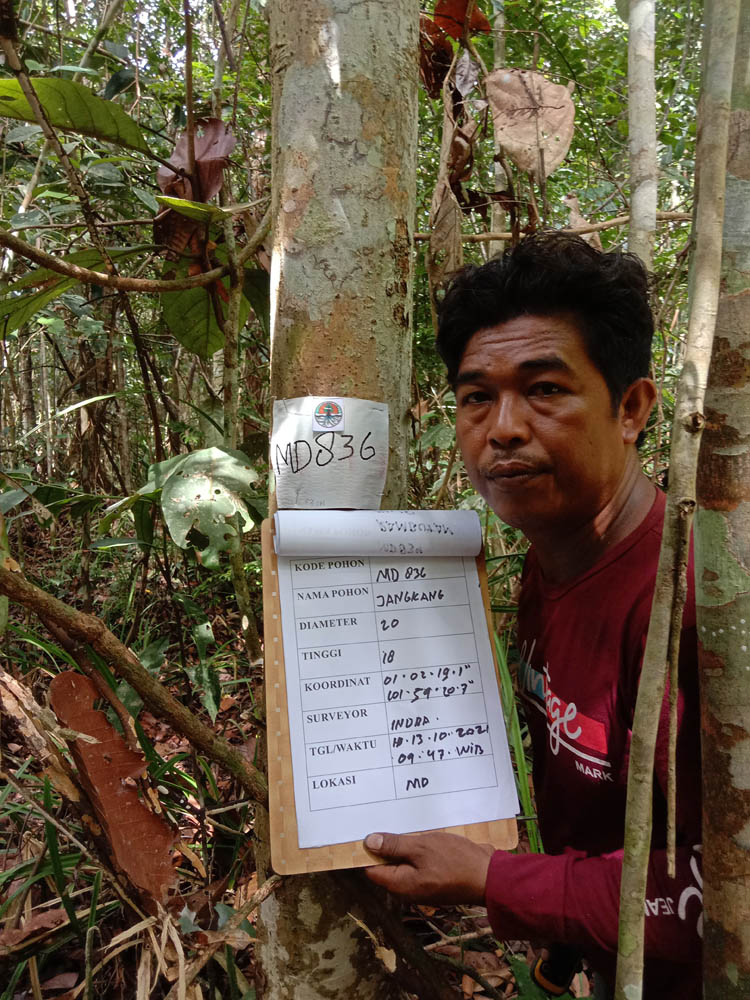 MD836
MD 836
KODE POHON MD 836
NAMA POHON JANGKANG
DIAMETER 20
TINGGI 18
KOORDINAT 01·02·19·1"
101·59·20·7"
SURVEYOR INDRA.
TGL/WAKTU 13·10·2021
09·47·WIB
LOKASI MD
MARK
JEA